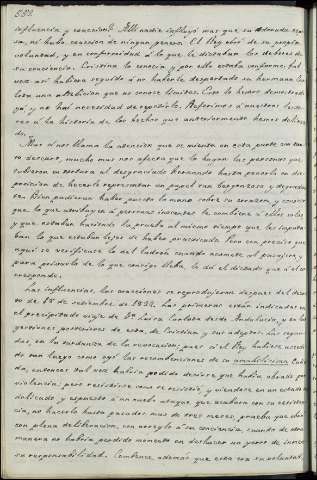 582.
influencia y coaccion? Allí nadie influyó mas que su
sa, ni hubo coaccion de ningun genero. El Rey obró de su propia
voluntad, y en conformidad á lo que le dictaban los deberes de
su conciencia. Cristina lo conocia y por ello estaba conforme,
vez así hubiera seguido á no haberle despertado su hermana Car-
lota una ambicion que no conoce limites. Esto lo hemos demostrado
ya y no hai necesidad de repetirlo. Referimos á nuestros lecto-
res á la historia de los hechos que anteriormente hemos deline-
do.
Mas si nos llama la atencion que se mienta en esta parte con tan-
to descaro, mucho mas nos afecta que lo hagan las personas que
redujeron su conducta al desgraciado Fernando hasta ponerlo en dis-
posicion de hacerle representar un papel tan vergonzoso y degradan-
te. Bien pudieran haber puesto la mano sobre su corazon, y conocer
que lo que atribuyen á personas inocentes le convierne á ellos solos
y que estaban haciendo la prueba al mismo tiempo que les imputa-
ban lo que estaban lejos de haber practicado. Pero era preciso que
aquí se verificase lo del ladron cuando acomete al pasajero, y
para privarlo de lo que consigo lleba, le da el dictado que á él co-
rresponde.
Las influencias, las coacciones se reprodujeron despues del decre-
to de 18 de setiembre de 1832. Las primeras están indicadas en
el precipitado viaje de Dª. Luisa Carlota desde Andalucia, y en las
gestiones posteriores de esta, de Cristina y sus adeptos: las segun-
das, en la tardanza de la revocacion; pues si el Rey hubiese accedi-
do tan luego como oyó las reconvenciones de su amabilisima Cuña-
da, entonces tal vez habria podido decirse que habia obrado sin
violencia; pero resistirse una vez resistió, y viendose en un estado
delicado y espuesto á un nuevo ataque que acabara con su existen-
cia, no hacerlo hasta pasados mas de tres meses, prueba que obró
con plena deliberacion, con arreglo á su conciencia, cuando de otra
manera no habria perdido momento en deshacer un yerro de inmen-
sa responsabilidad. Combence ademas que esta era su voluntad,